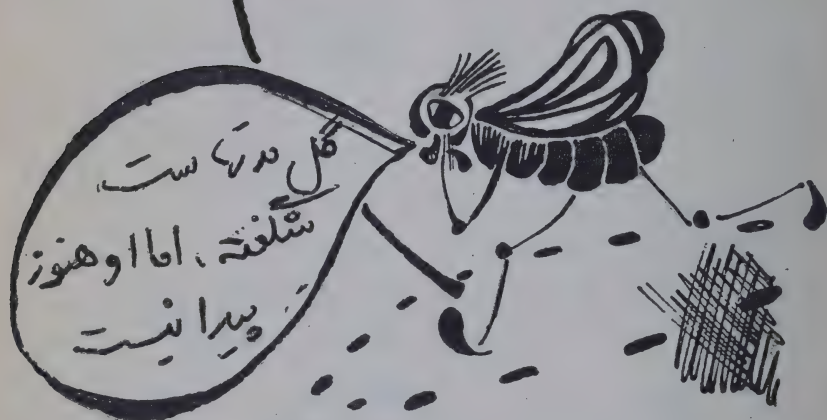 گل مدتهاست
شگفته، اما او هنوز
پیدا نیست